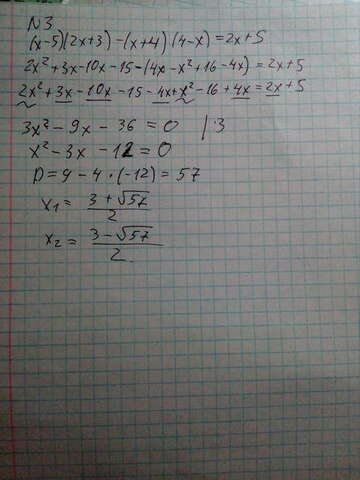 N3
(x-5)(2x+3)-(x+4)(4-x)=2x+5
2x²+3x-10x-15-(4x-x²+16-4x)=2x+5
2x²+3x-10x-15-4x+x²-16+4x=2x+5
3x²-9x-36=0 |3
x²-3x-12=0
D=9-4·(-12)=57
x₁=(3+√57)/2
x₂=(3-√57)/2